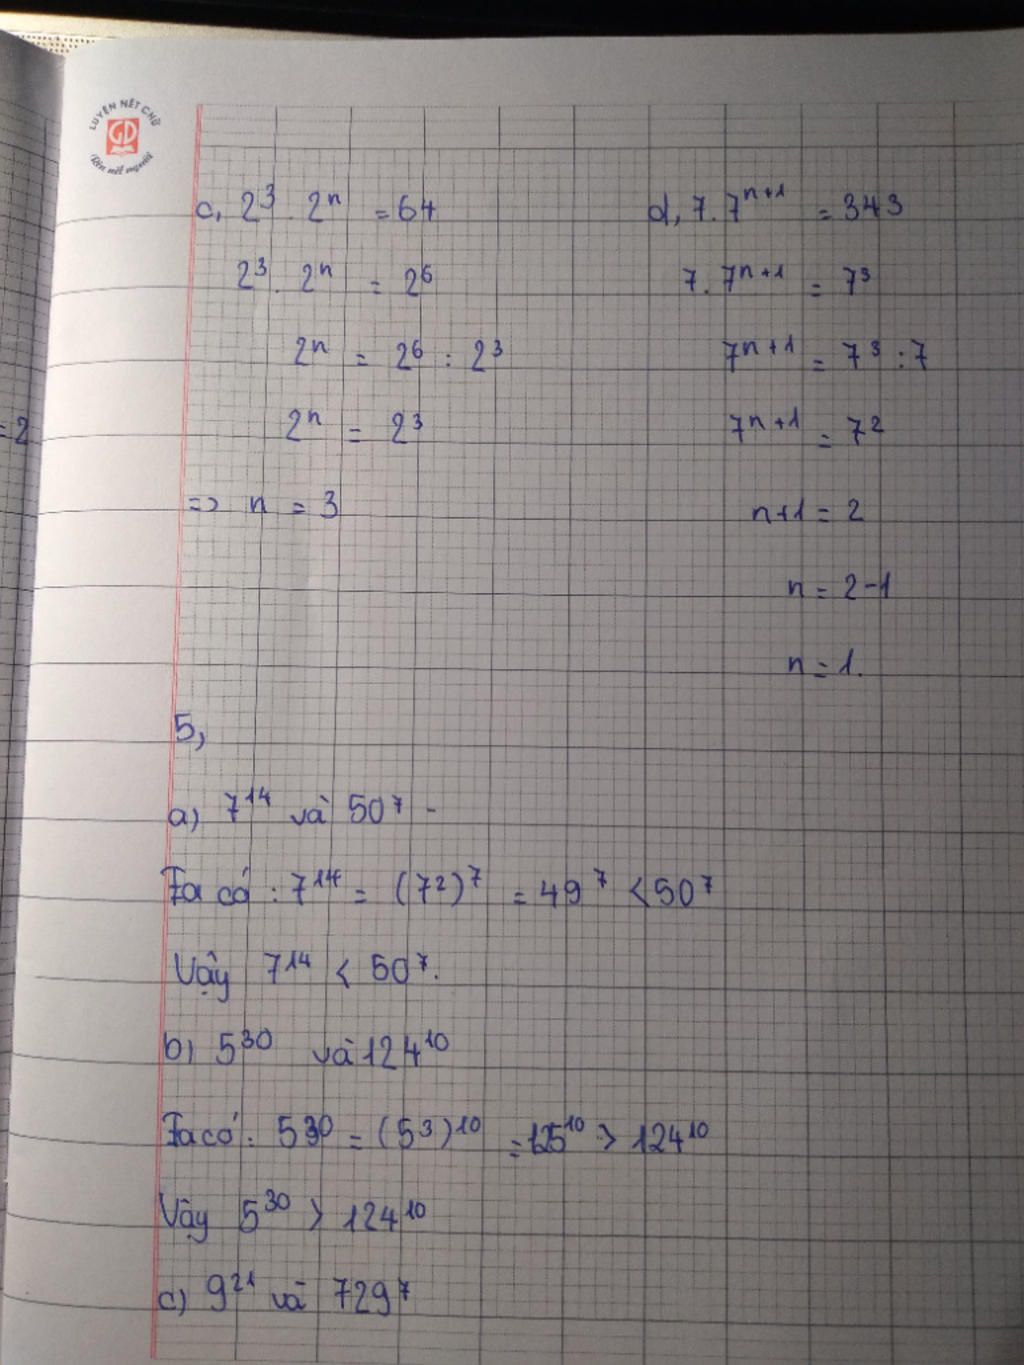 LUYỆN NÉT CHỮ
GD
Rèn nết người
c, 2³ . 2ⁿ = 64
2³ . 2ⁿ = 2⁶
2ⁿ = 2⁶ : 2³
2ⁿ = 2³
=> n = 3
d, 7 . 7ⁿ⁺¹ = 343
7 . 7ⁿ⁺¹ = 7³
7ⁿ⁺¹ = 7³ : 7
7ⁿ⁺¹ = 7²
n+1 = 2
n = 2-1
n = 1.
= 2
5,
a) 7¹⁴ và 50⁷ -
Ta có : 7¹⁴ = (7²)⁷ = 49⁷ < 50⁷
Vậy 7¹⁴ < 50⁷.
b) 5³⁰ và 124¹⁰
Ta có : 5³⁰ = (5³)¹⁰ = 125¹⁰ > 124¹⁰
Vậy 5³⁰ > 124¹⁰
c) 9²¹ và 729⁷